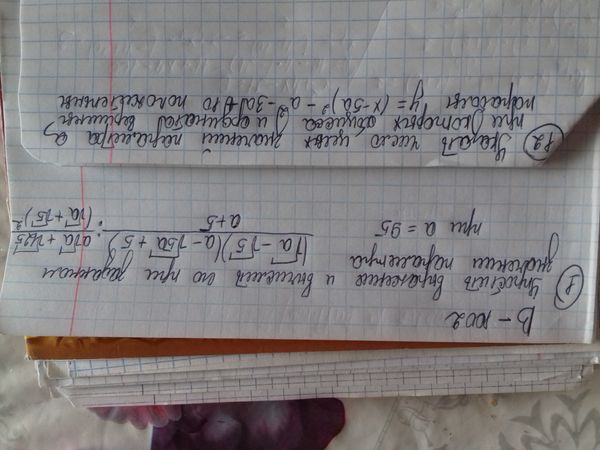 В-1002
① Упростить выражение и вычислить его при заданном
значении параметра
(√a-√5)(a-√5a+5) / a+5 : a√a+√125 / (√a+√5)²
при a=95
②  Указать число целых значений параметра a,
при которых абсцисса и ордината вершины
параболы y=(x-5a)²-a²-3a+10 положительны